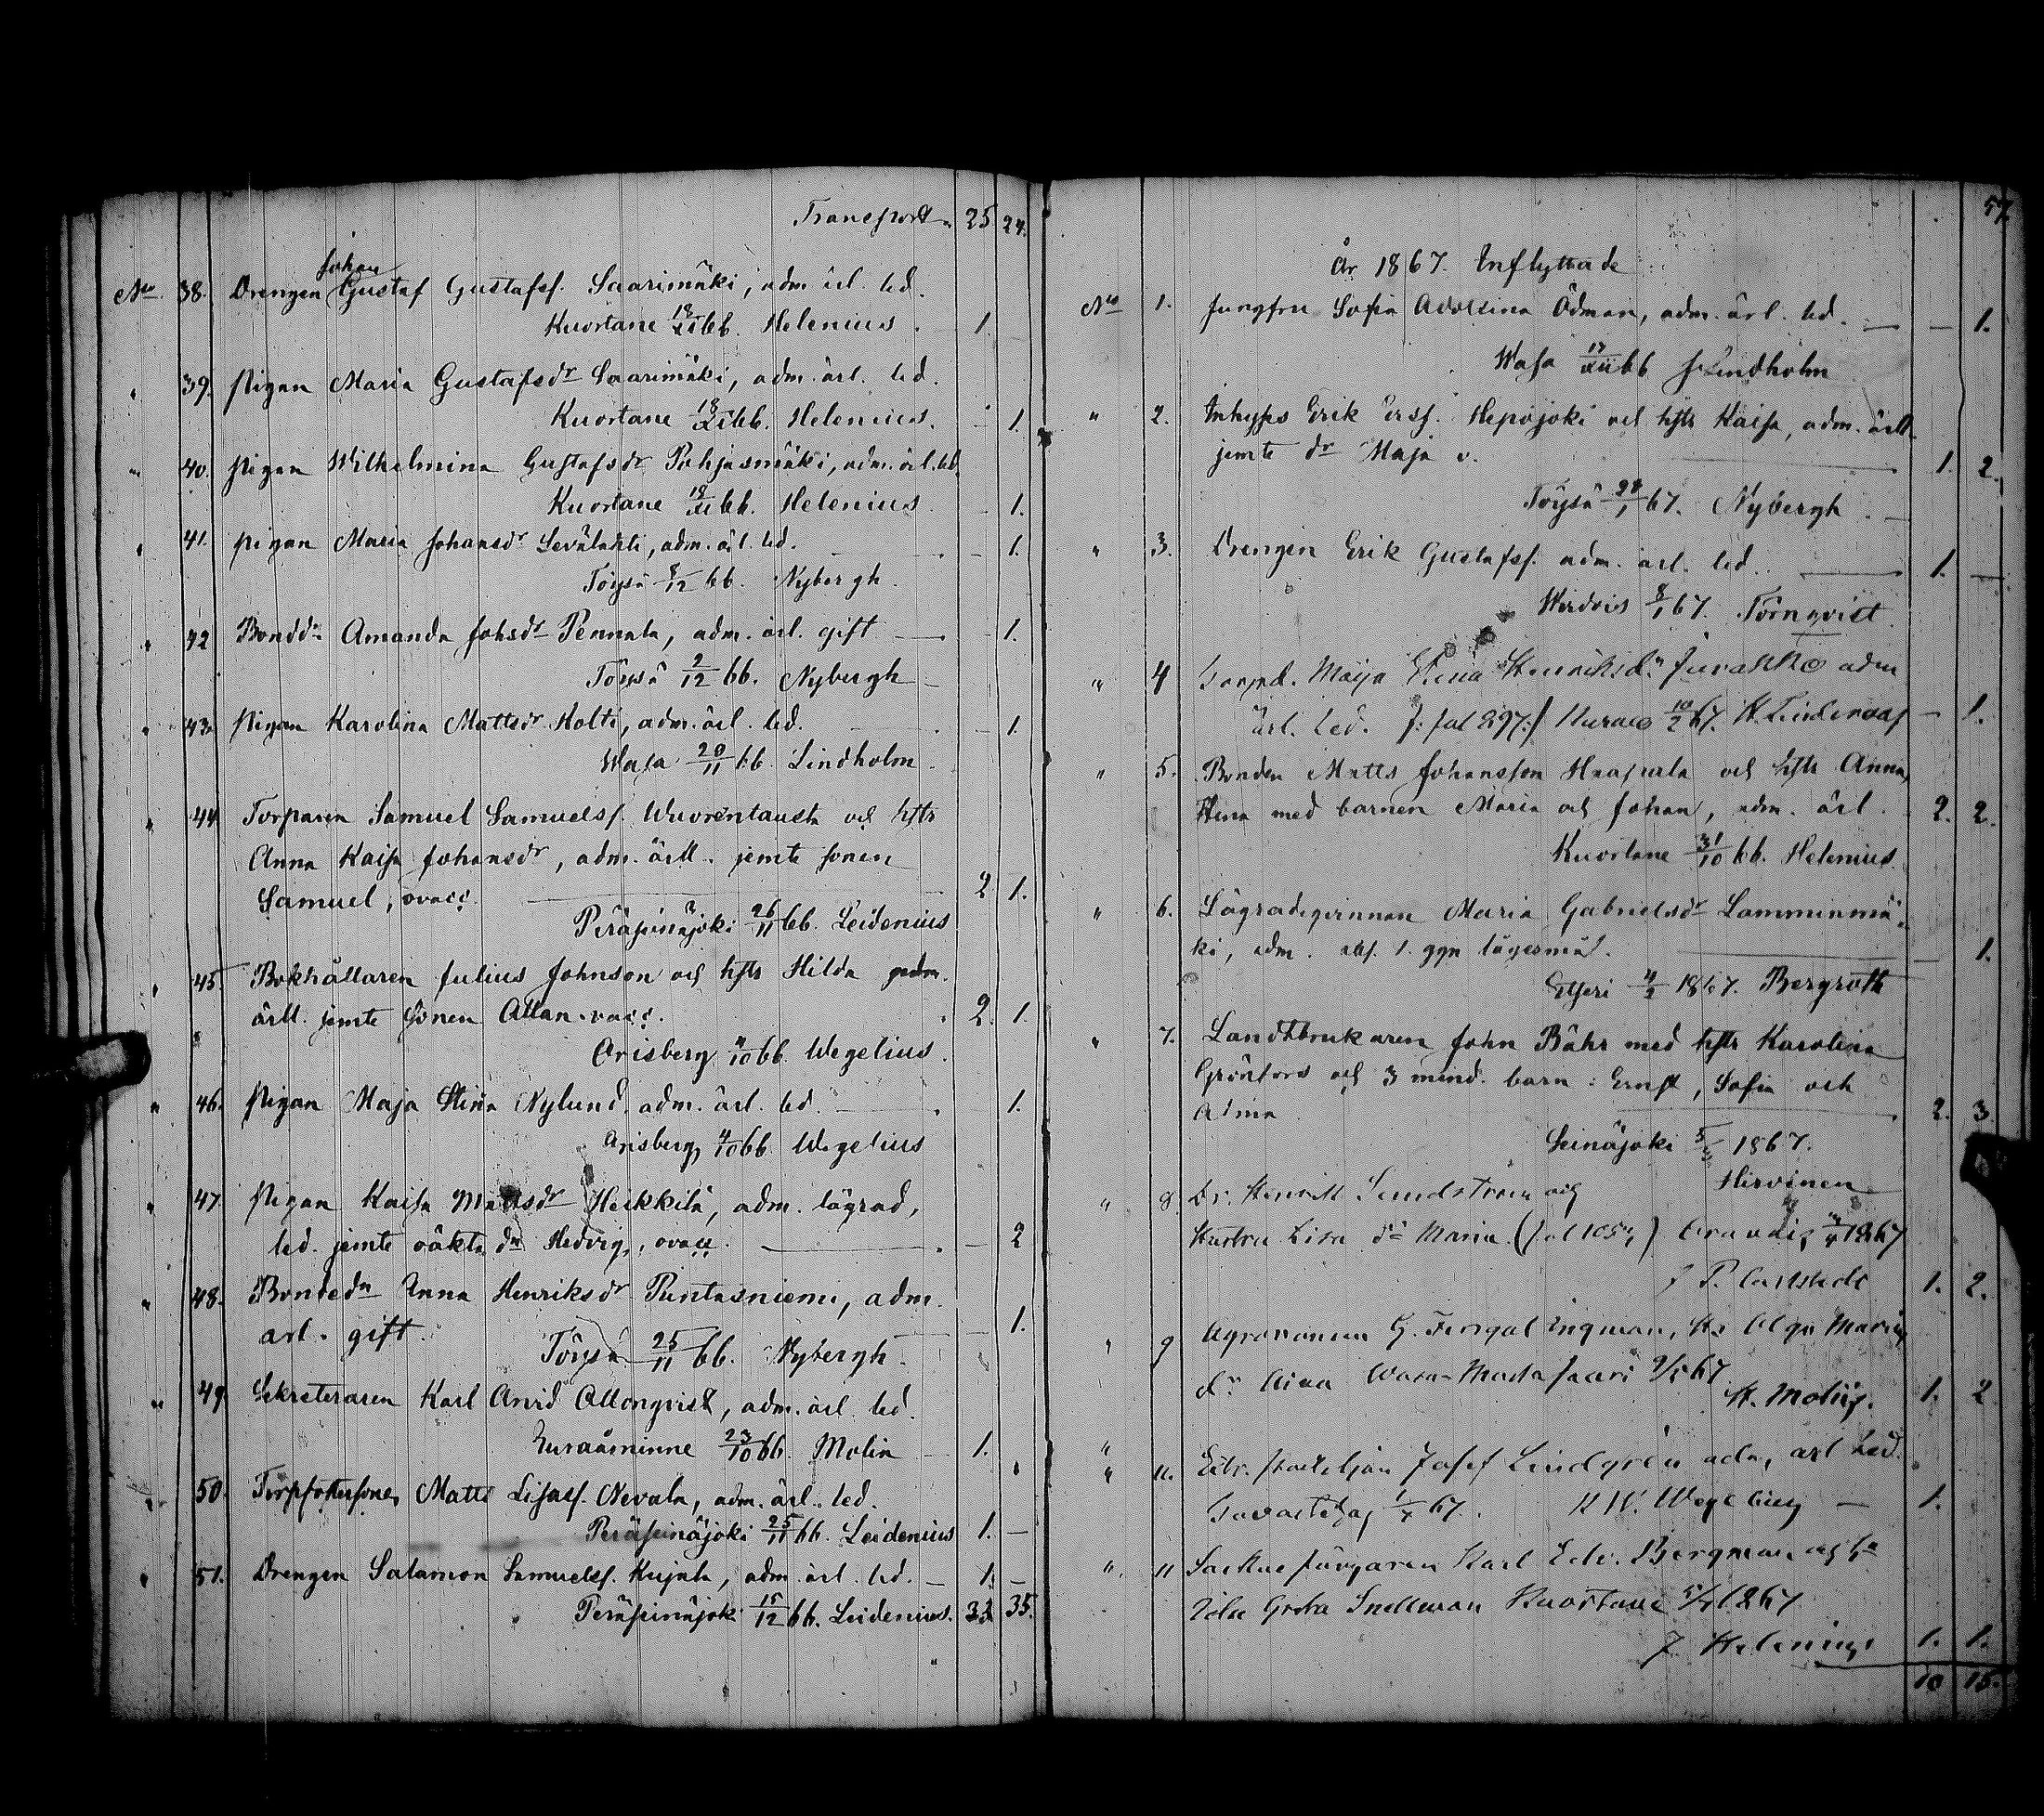 Transport 25 24.
Johan
No 38. Drengen Gustaf Gustafss. Saarimäki, adm. ärl. led.
Kuortane 18/XI 66. Helenius. 1.
" 39. Pigan Maria Gustafsdr Saarimäki, adm. ärl. led.
Kuortane 18/XI 66. Helenius. – 1.
" 40. Pigan Wilhelmina Gustafsdr Pohjasmäki, adm. ärl. led.
Kuortane 18/XI 66. Helenius. – 1.
" 41. Pigan Maria Johansdr Levälahti, adm. ärl. led. – 1.
Töysä 8/12 66. Nybergh.
" 42 Bondd:n Amanda Johsdr Pennala, adm. ärl. gift – 1.
Töysä 2/12 66. Nybergh
" 43. Pigan Karolina Mattsdr Holti, adm. ärl. led. – 1.
Wasa 20/11 66. Lindholm.
" 44 Torparen Samuel Samuelss. Wuorentausta och hstr
Anna Kaisa Johansdr, adm. ärll. jemte sonen
Samuel, ovacc. 2 1.
Peräseinäjoki 26/11 66. Leidenius
" 45. Bokhållaren Julius Johnson och hstr Hilda adm.
ärll. jemte sonen Allan vacc. 2. 1.
Orisberg 4/10 66. Wegelius.
" 46. Pigan Maja Stina Nylund. adm. ärl. led. 1.
Orisberg 4/10 66. Wegelius
" 47. Pigan Kaisa Mattsdr Heikkilä, adm. lägrad,
led. jemte oäkta dn Hedvig, ovacc. – 2
" 48. Bondedn Anna Henriksdr Puntasniemi, adm.
ärl. gift. – 1.
Töysä 25/11 66. Nybergh.
" 49. Sekreteraren Karl Arvid Allonqvist, adm. ärl. led.
Euraåminne 23/10 66. Molin – 1.
" 50. Matts Lisass. Nevala, adm. ärl. led.
Peräseinäjoki 25/11 66. Leidenius 1. –
" 51. Drengen Salamon Samuelss. Kujala, adm. ärl. led. – 1. –
Peräseinäjoki 15/12 66. Leidenius. 33. 35.
57.
År 1867. Inflyttade
No 1. Jungfru Sofia Adolfina Ödman, adm. ärl. led. – 1.
Wasa 17/XII 66 Lindholm
" 2. Inhyses Erik Erss. Hepojoki och hstr Kaisa, adm. ärll.
jemte dr Maja v. 1. 2.
Töysä 28/1 67. Nybergh.
" 3. Drengen Erik Gustafss. adm. ärl. led. 1. –
Wirdois 8/1 67. Törnqvist.
" 4 Maija Henriksdr adm
ärl. led. 10/2 67. – 1.
" 5. Bonden Matts Johansson Haapala och hstr Anna
Stina med barnen Maria och Johan, adm. ärl. 2. 2.
Kuortane 31/10 66. Helenius.
" 6. Lägradeqvinnan Maria Gabrielsdr Lamminmä-
ki, adm. abs. 1. ggn lägersmål. – 1.
Etseri 4/2 1867. Bergroth
" 7. Landtbrukaren John Bähr med hstr Karolina
Grönfors och 3 mind. barn: Ernst, Sofia och
Alma 2. 3.
Seinäjoki 5/3 1867.
Hirvinen
" 8. Dr. Henrik Sundström och
Hustru Lisa dr Maria. 1867
Carlstedt 1. 2.
" 9 Agronomen G. Fingal Ingman, Hu Olga Maria
dr Aina Wasa-Mustasaari 9/5 67
H. Molin. 1. 2
" 11. Josef Lindgrén adm, ärl led.
67. Wegelius – 1.
" 11 Karl Edv. Bergman och hu
Greta Snellman Kuortane 1867
J Helenius 1. 1.
10 15.